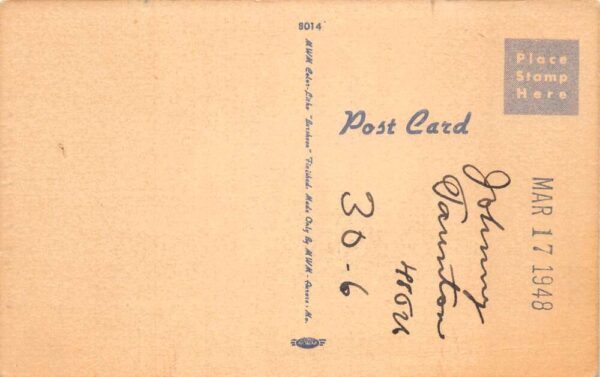 8014
MWM Color-Litho "Burchene" Finished. Made Only By MWM - Aurora, Mo.
Place
Stamp
Here
Post Card
MAR 17 1948
Johnny
Taunton
30-6